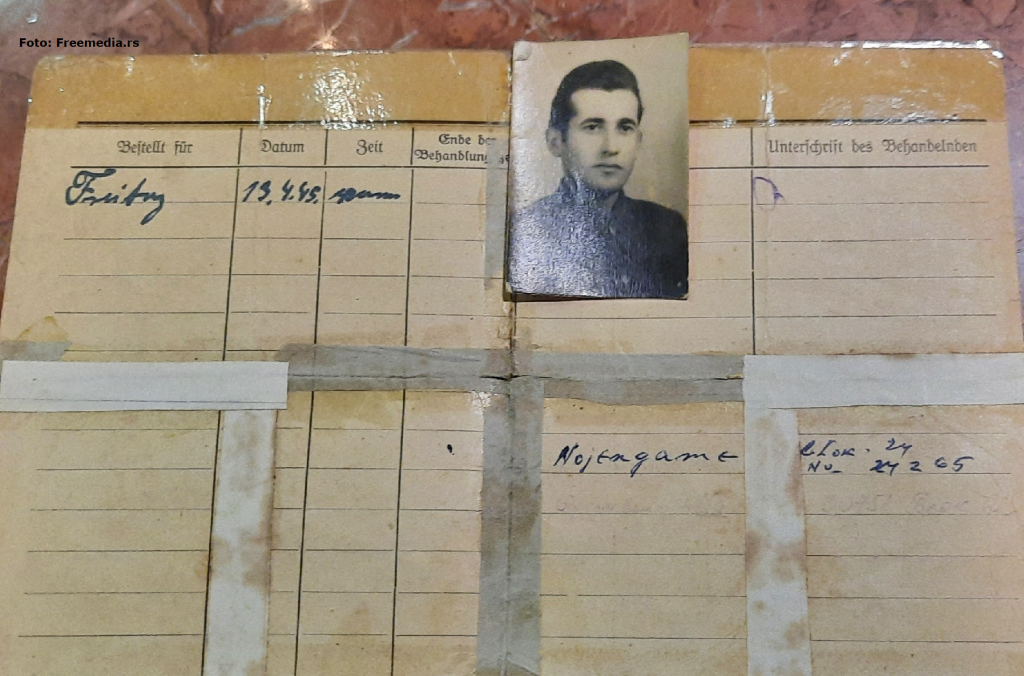 Foto: Freemedia.rs
Bestellt für Datum Zeit Ende der Behandlung Unterschrift des Behandelnden
Freitag 13.4.45.
Nojengame Blok. 24
No 24265